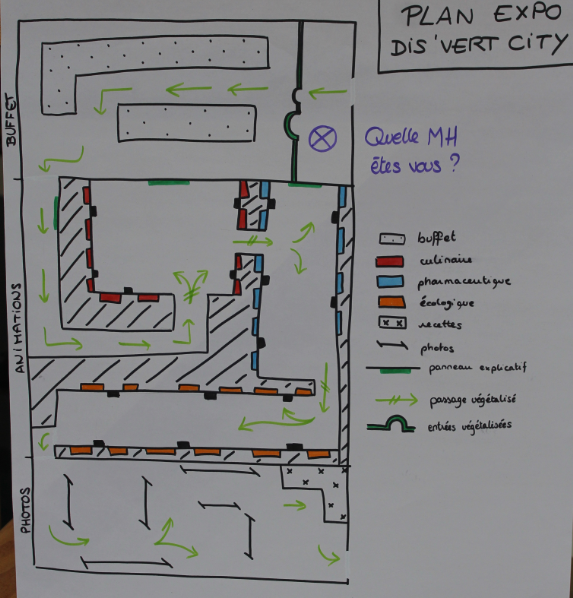 PLAN EXPO
DIS'VERT CITY
BUFFET
Quelle MH
êtes vous ?
ANIMATIONS
buffet
culinaire
pharmaceutique
écologique
recettes
photos
panneau explicatif
passage végétalisé
entrées végétalisées
PHOTOS